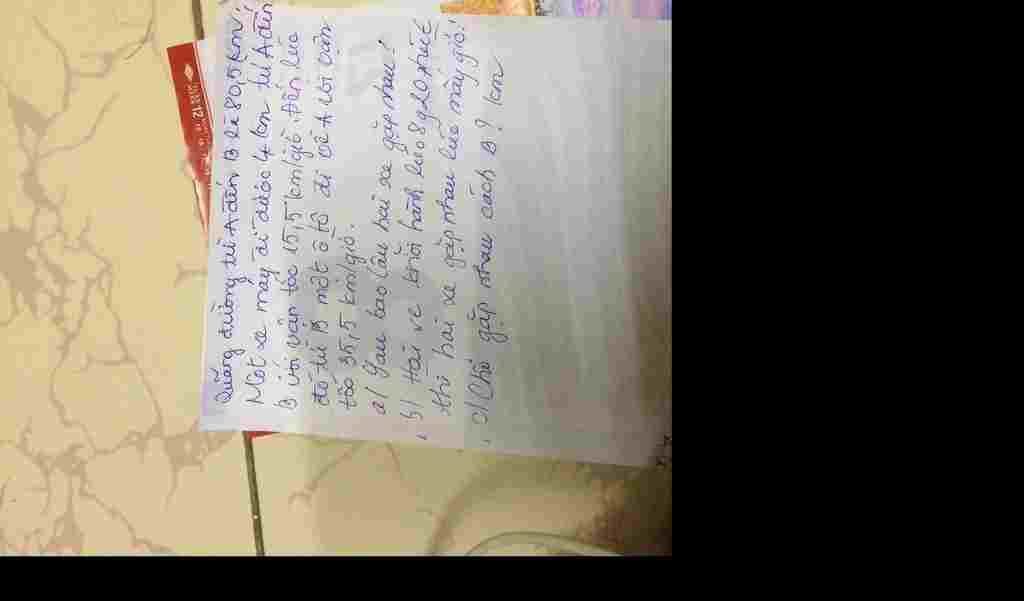 Quãng đường từ A đến B là 80,5 km,
Một xe máy đi được 4 km từ A đến
B với vận tốc 15,5 km/giờ. Đến lúc
đó từ B một ô tô đi về A với vận
tốc 35,5 km/giờ.
a/ Sau bao lâu hai xe gặp nhau?
b/ Hai xe khởi hành lúc 8g20 phút
thì hai xe gặp nhau lúc mấy giờ?
c/ Chỗ gặp nhau cách B? km
12